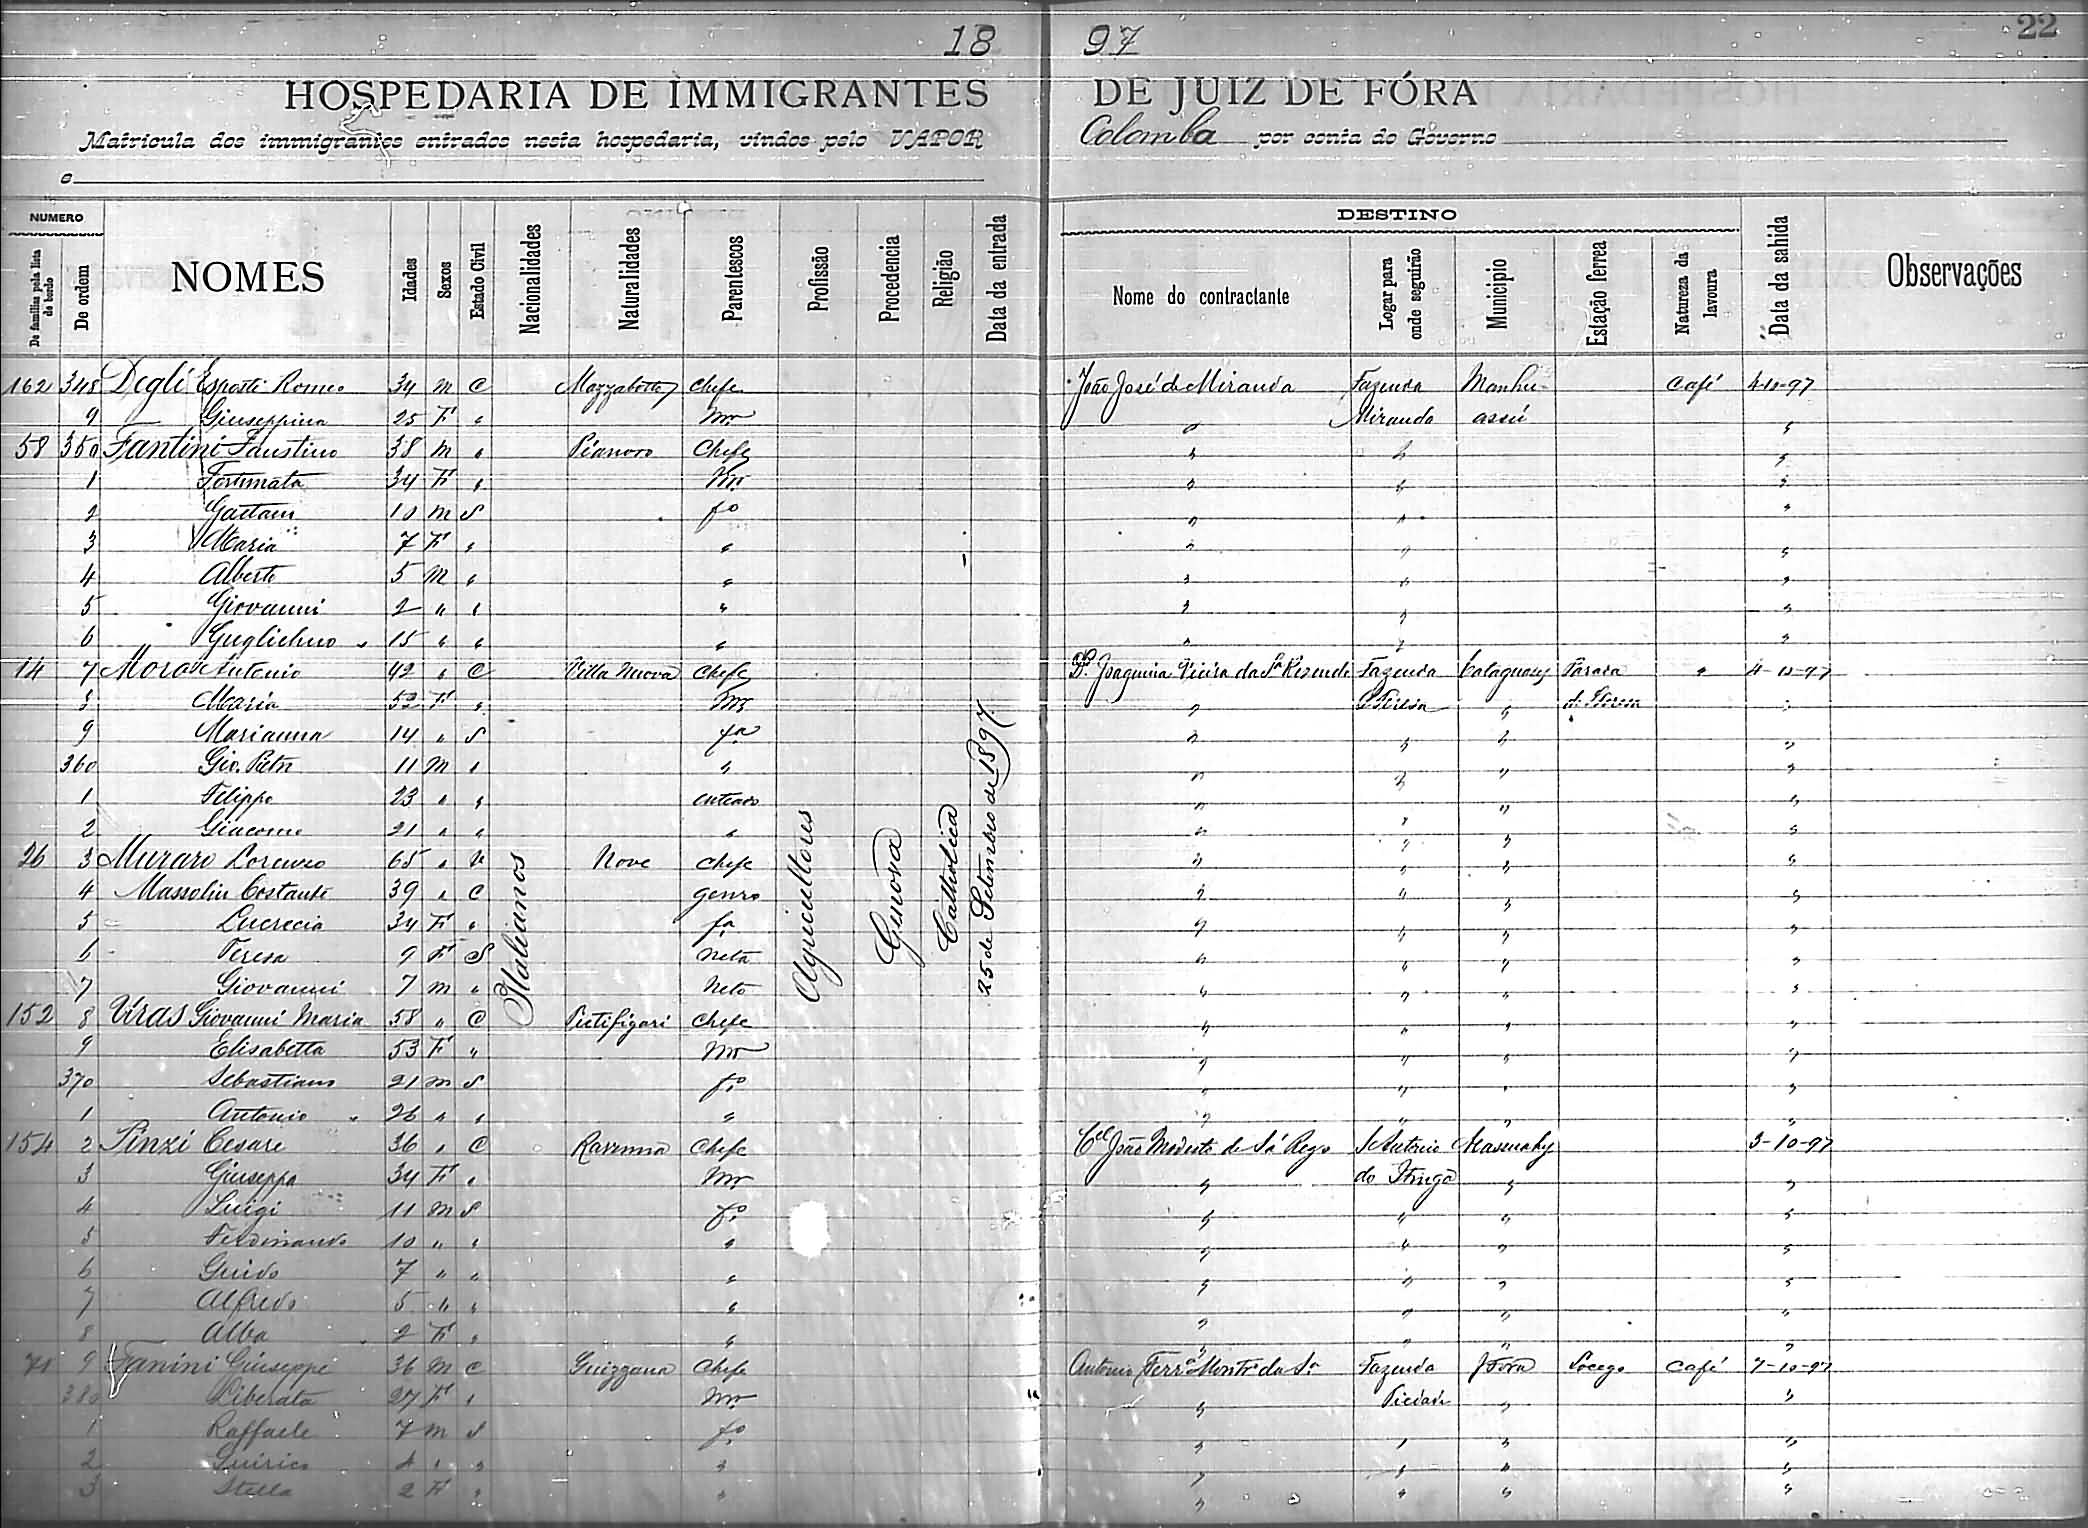 18 97 22
HOSPEDARIA DE IMMIGRANTES DE JUIZ DE FÓRA
Matricula dos immigrantes entrados nesta hospedaria, vindos pelo VAPOR Colomba por conta do Governo
e
NUMERO DESTINO
De familias pela lista de bordo De ordem NOMES Idades Sexos Estado Civil Nacionalidades Naturalidades Parentescos Profissão Procedencia Religião Data da entrada Nome do contractante Logar para onde seguirão Municipio Estação ferrea Natureza da lavoura Data da sahida Observações
162 348 Degli Esposti Romeo 34 m C Chefe João José de Miranda Fazenda Manhu- Café 4-10-97
9 Giuseppina 25 F " Mer " Miranda assú "
58 350 Fantini Faustino 38 m " Pianoro Chefe " " "
1 Fortunata 34 F " Mer " " "
2 Gaetano 10 m S fo " " "
3 Maria 7 F " " " " "
4 Alberto 5 m " " " " "
5 Giovanni 2 " " " " " "
6 Guglielmo 15 " " " " " "
14 7 Mora Antonio 42 " C Villa Nuova Chefe Da. Joaquina Vieira da Sa Rezende Fazenda Cataguazes Parada " 4-10-97
8 Maria 52 F " Mer " " "
9 Marianna 14 " S fa " " " "
360 Gio. Pietro 11 m " " " " " "
1 Filippo 23 " " enteado " " "
2 Giacomo 21 " " " " " " "
26 3 Muraro Lorenzo 65 " V Nove Chefe " " " "
4 Massolin Costante 39 " C genro " " " "
5 Lucrecia 34 F " fa " " " "
6 Teresa 9 F S Neta " " " "
7 Giovanni 7 m " Neto " " " "
Italianos Agricultores Genova Catholica 25 de Setembro de 1897
152 8 Viras Giovanni Maria 58 " C Putifigari Chefe " " " "
9 Elisabetta 53 F " Mer " " " "
370 Sebastiano 21 m S fo " " " "
1 Antonio 26 " " " " " " "
154 2 Pinzi Cesare 36 " C Ravenna Chefe Cel João Modesto de Sá Rego S Antonio 3-10-97
3 Giuseppa 34 F " Mer " do Itinga " "
4 Luigi 11 m S fo " " " "
5 Ferdinando 10 " " " " " " "
6 Guido 7 " " " " " " "
7 Alfredo 5 " " " " " " "
8 Alba 2 F " " " " " "
71 9 Fanini Giuseppe 36 m C Guizzana Chefe Antonio Ferra Montro da Sa Fazenda J Fora Socego Café 7-10-97
380 Liberata 27 F " Mer " Piedade " "
1 Raffaele 7 m S fo " " " "
2 Quirico 4 " " " " " " "
3 Stella 2 F " " " " " "